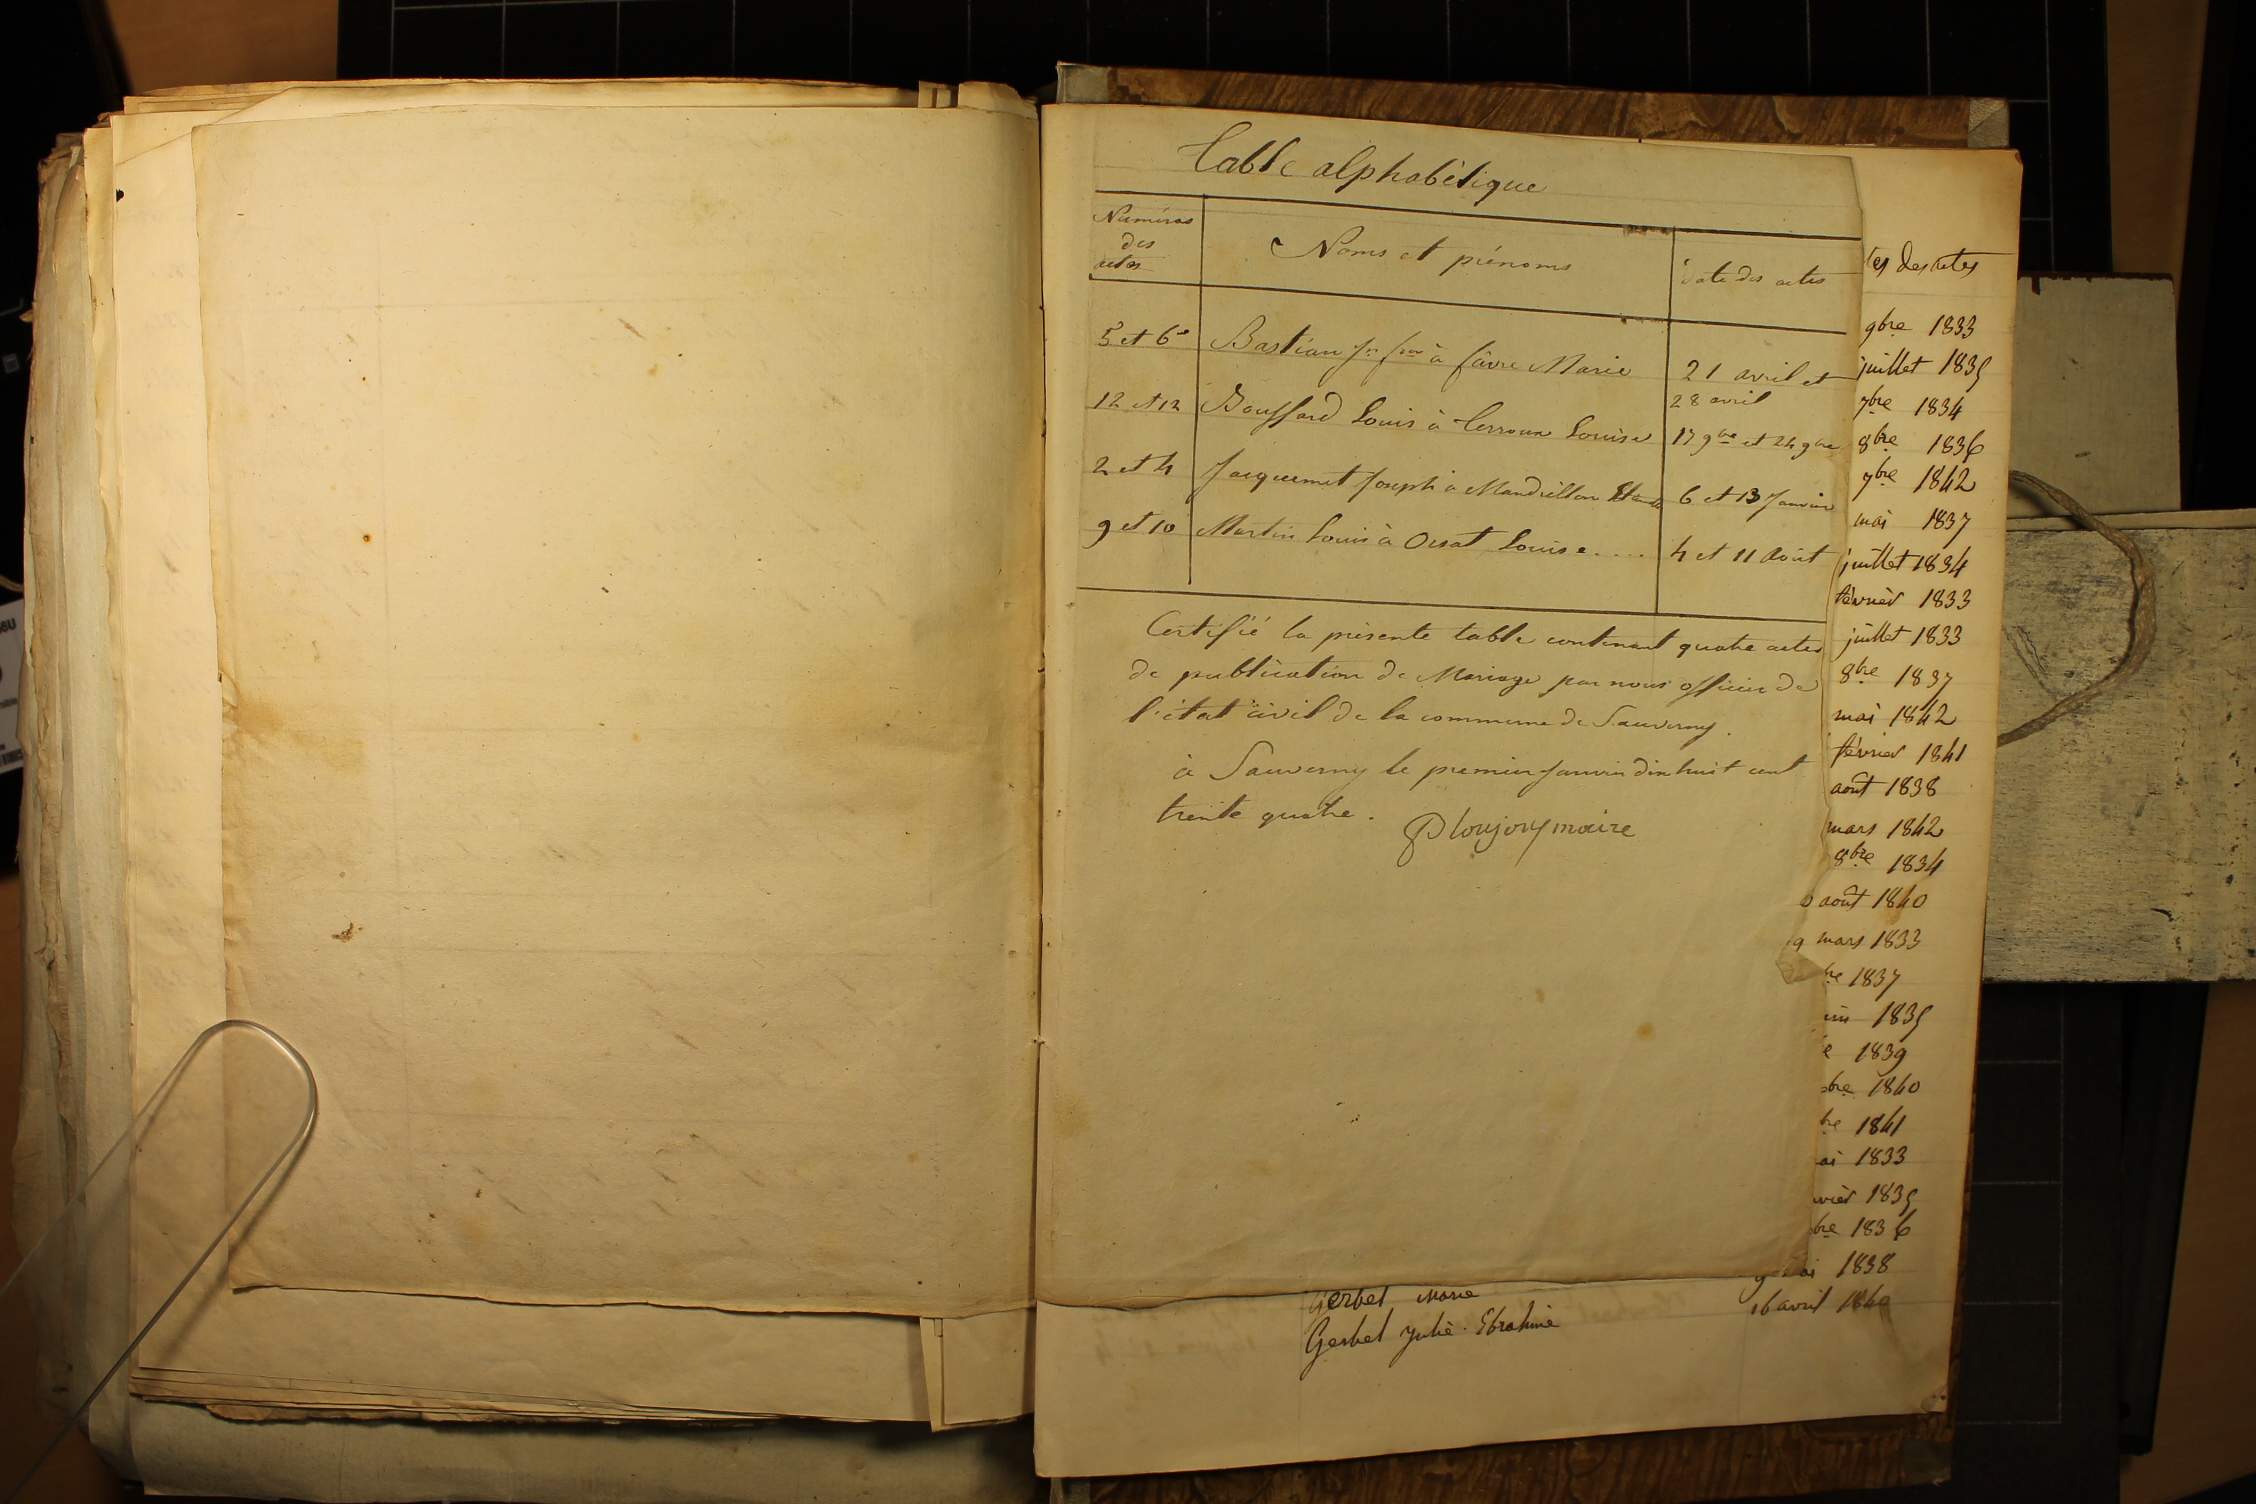 Table alphabétique
Numéros
des
actes
Noms et prénoms
Date des actes
5 et 6
Bastian Jn fois à fâvre Marie
21 avril et
28 avril
12 et 12
Bouffard Louis à Terroux Louise
17 9bre et 24 9bre
2 et 4
Jacquemet Joseph à Mandrillon
6 et 13 Janvier
9 et 10
Martin Louis à Orsat Louise....
4 et 11 août
Certifié la présente table contenant quatre actes
de publication de Mariage par nous officier de
l'état civil de la commune de Sauverny.
à Sauverny le premier Janvier dix huit cent
trente quatre.
maire
des actes
9bre 1833
juillet 1835
7bre 1834
8bre 1836
7bre 1842
mai 1837
juillet 1834
février 1833
juillet 1833
8bre 1837
mai 1842
février 1841
août 1838
mars 1842
8bre 1834
août 1840
9 mars 1833
bre 1837
1835
1839
bre 1840
bre 1841
ai 1833
vier 1835
bre 1836
1838
Gerbel Marie
16 avril 1840
Gerbel Julie